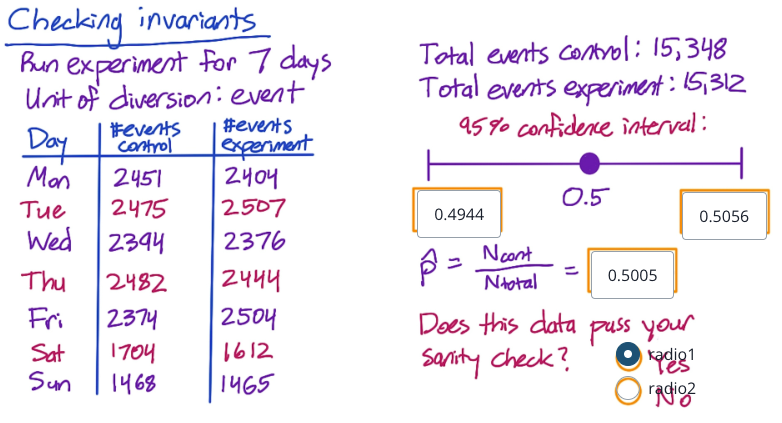 Checking invariants
Run experiment for 7 days
Unit of diversion: event
Day #events control #events experiment
Mon 2451 2404
Tue 2475 2507
Wed 2394 2376
Thu 2482 2444
Fri 2374 2504
Sat 1704 1612
Sun 1468 1465
Total events control: 15,348
Total events experiment: 15,312
95% confidence interval:
0.5
0.4944 0.5056
p̂ = Ncont / Ntotal = 0.5005
Does this data pass your
sanity check?
radio1
Yes
radio2
No